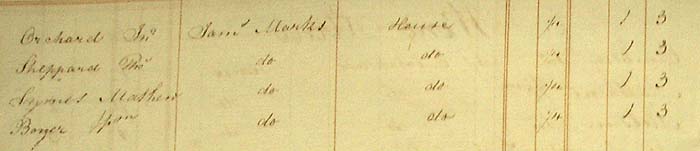 Orchard Jnº Samˡ Marks House 1/4 1 3
Sheppard Thoˢ do do 1/4 1 3
Symes Mathew do do 1/4 1 3
Boyer do do 1/4 1 3